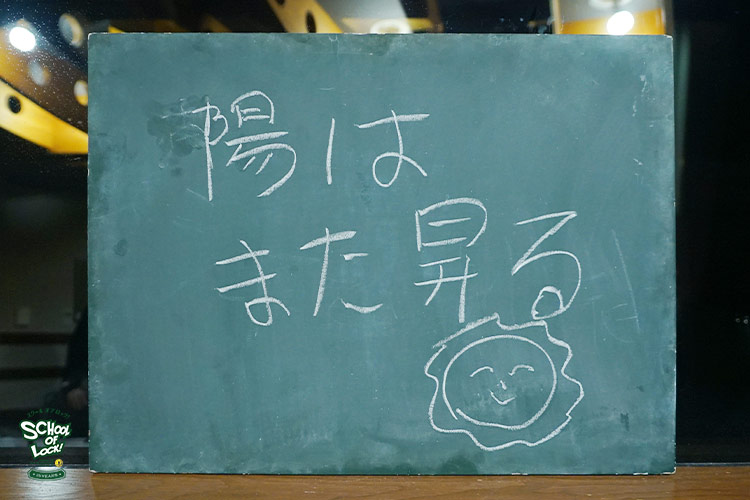 陽は
また昇る
SCHOOL
OF
LOCK!